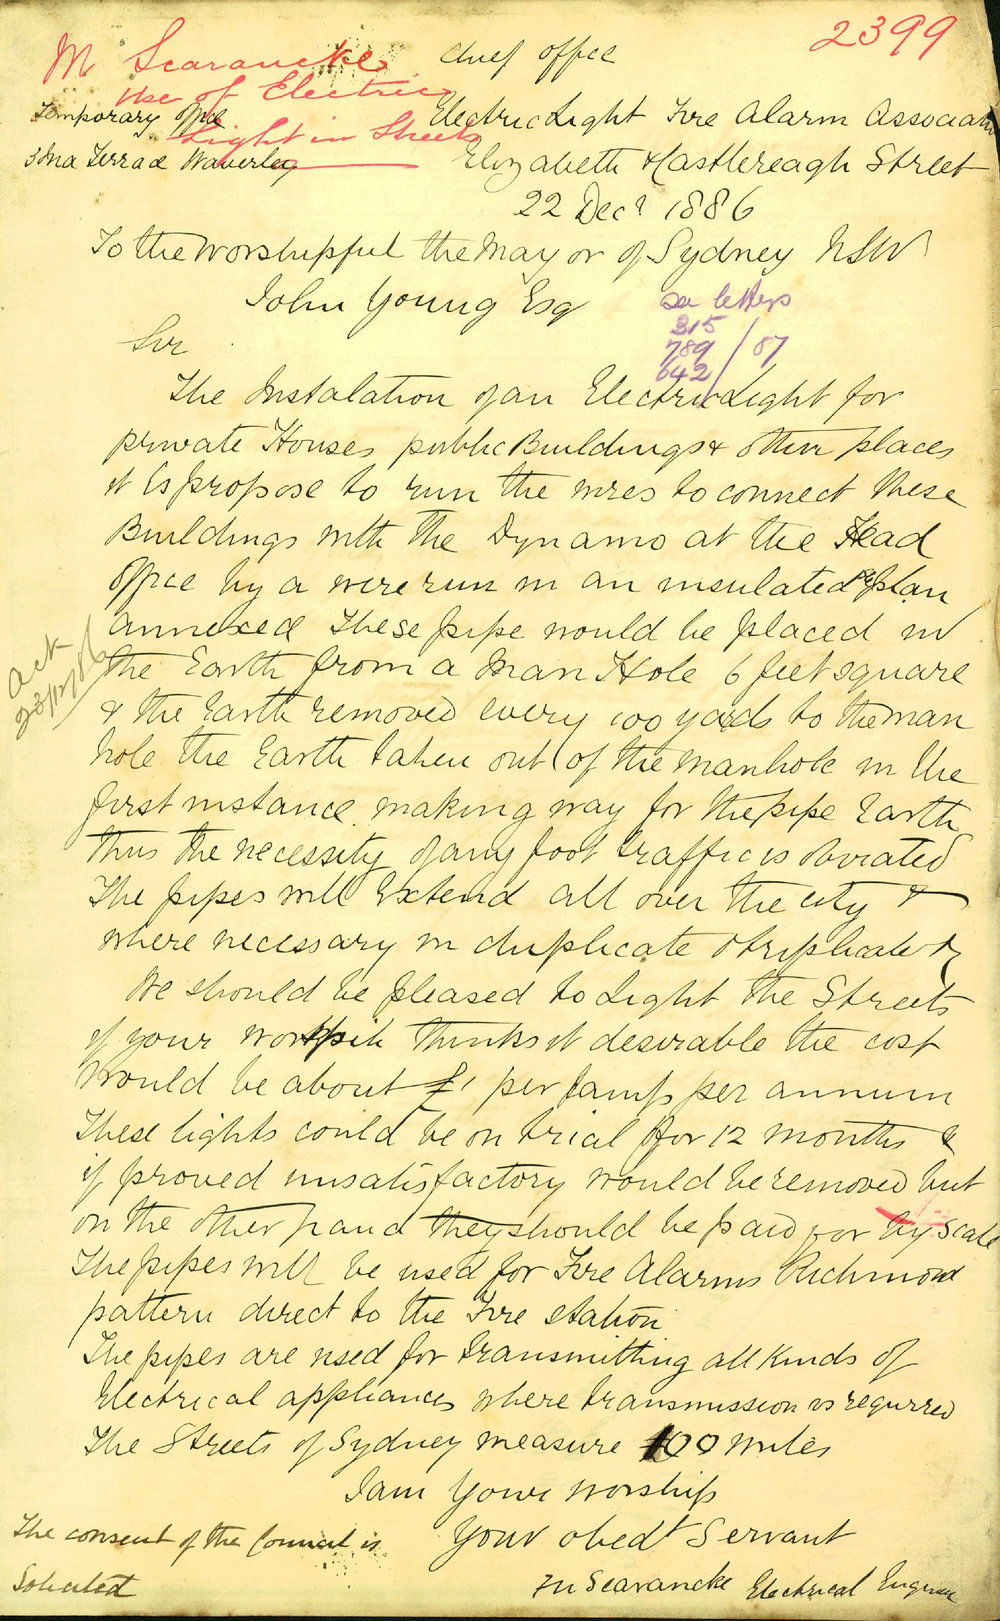 2399
M Scarancke
Use of Electric
Light in Streets
Chief office
Temporary office
Electric Light Fire Alarm Associatn
3 Ina Terrace Waverley
Elizabeth & Castlereagh Street
22 Decr 1886
To the Worshipful the Mayor of Sydney NSW
John Young Esq
see letters
315
789 / 87
642
Sir
The Instalation of an Electric Light for
private Houses public Buildings & other places
it is propose to run the wires to connect these
Buildings with the Dynamo at the Head
office by a wire run in an insulated plan
annexed These pipe would be placed in
the Earth from a Man Hole 6 feet square
& the Earth removed every 100 yards to the man
hole the Earth taken out of the manhole in the
first instance making way for the pipe Earth
thus the necessity of any foot traffic is obviated
The pipes will Extend all over the city &
where necessary in duplicate & triplicate &
Ack
23/12/86
We should be pleased to Light the Streets
if your worship thinks it desirable the cost
would be about £1 per Lamp per annum
These lights could be on trial for 12 months &
if proved unsatisfactory would be removed but
on the other hand they should be paid for by scale
The pipes will be used for Fire Alarms Richmond
pattern direct to the Fire station
The pipes are used for transmitting all kinds of
Electrical appliances where transmission is required
The Streets of Sydney measure 100 miles
I am Your worship
Your obedt Servant
The consent of the Council is
Solicited
Scarancke Electrical Engineer